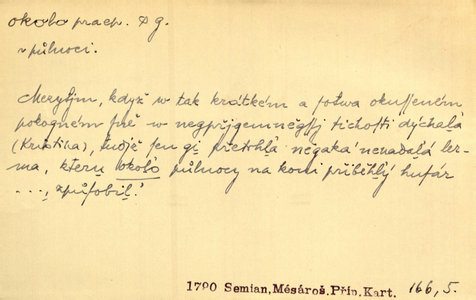 okolo praep. ɔ g.
v půlnoci.
Mezytjm, když w tak krátkém a sotwa okusseném
pokogném sně w negpřigemněgssj tichosti dýchala
(Kristina), hnedže sen gi přetrhla něgaká nenadalá ler-
ma, kteru okolo půlnocy na koni přiběhlý husár
..., způsobil.
1790 Semian, Mésároš, Příp. Kart. 166, 5.